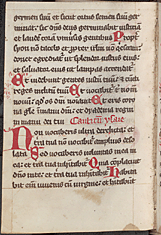 germen suū et sicut ortus semen suū ger
minat: sic dn̄s deus germinabit iustitiā
et laudē coram universis gentibus Propt̄
syon nō tacebo et propter irlm̄ nō qescam:
donec egrediatur ut splendor iustus eius
et salvator eius ut lampas accendat᷑
Et videbunt gentes iustū tuū: et cuncti
reges inclitū tuū Et vocabit᷑ t nomē
novū: qd os dn̄i noīabit Et eris coro
na glē in manu dn̄i: et dyadema regni
in manu dei tui Canticū ysaie
Non vocaberis ultra derelicta: et
terra tua nō vocabit᷑ amplius deso
lata Sed vocaberis voluntas mea in
ea: et tr̄a tua inhabitabit᷑ Quia cōplacuit
dn̄o in te: et tr̄a tua inhabitabit᷑ Habita
bit eni iuvenis cū virgine: et habitabūt